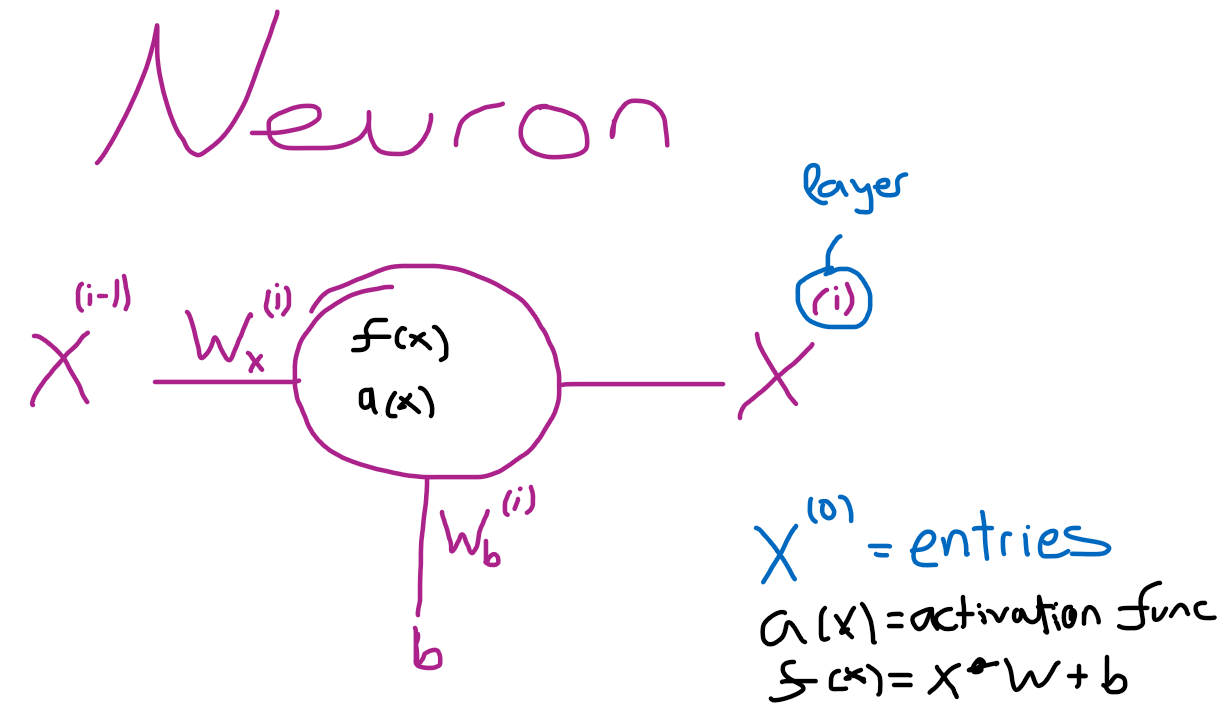 Neuron
layer
X^(i-1) W_x^(i) f(x) X^(i)
a(x)
W_b^(i)
b
X^(0) = entries
a(x) = activation func
f(x) = X • W + b